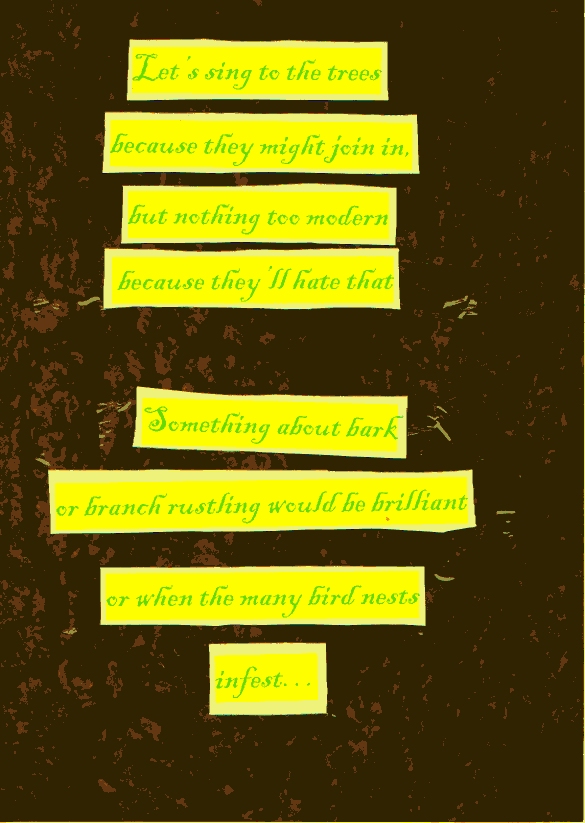 Let's sing to the trees
because they might join in,
but nothing too modern
because they'll hate that
Something about bark
or branch rustling would be brilliant
or when the many bird nests
infest...